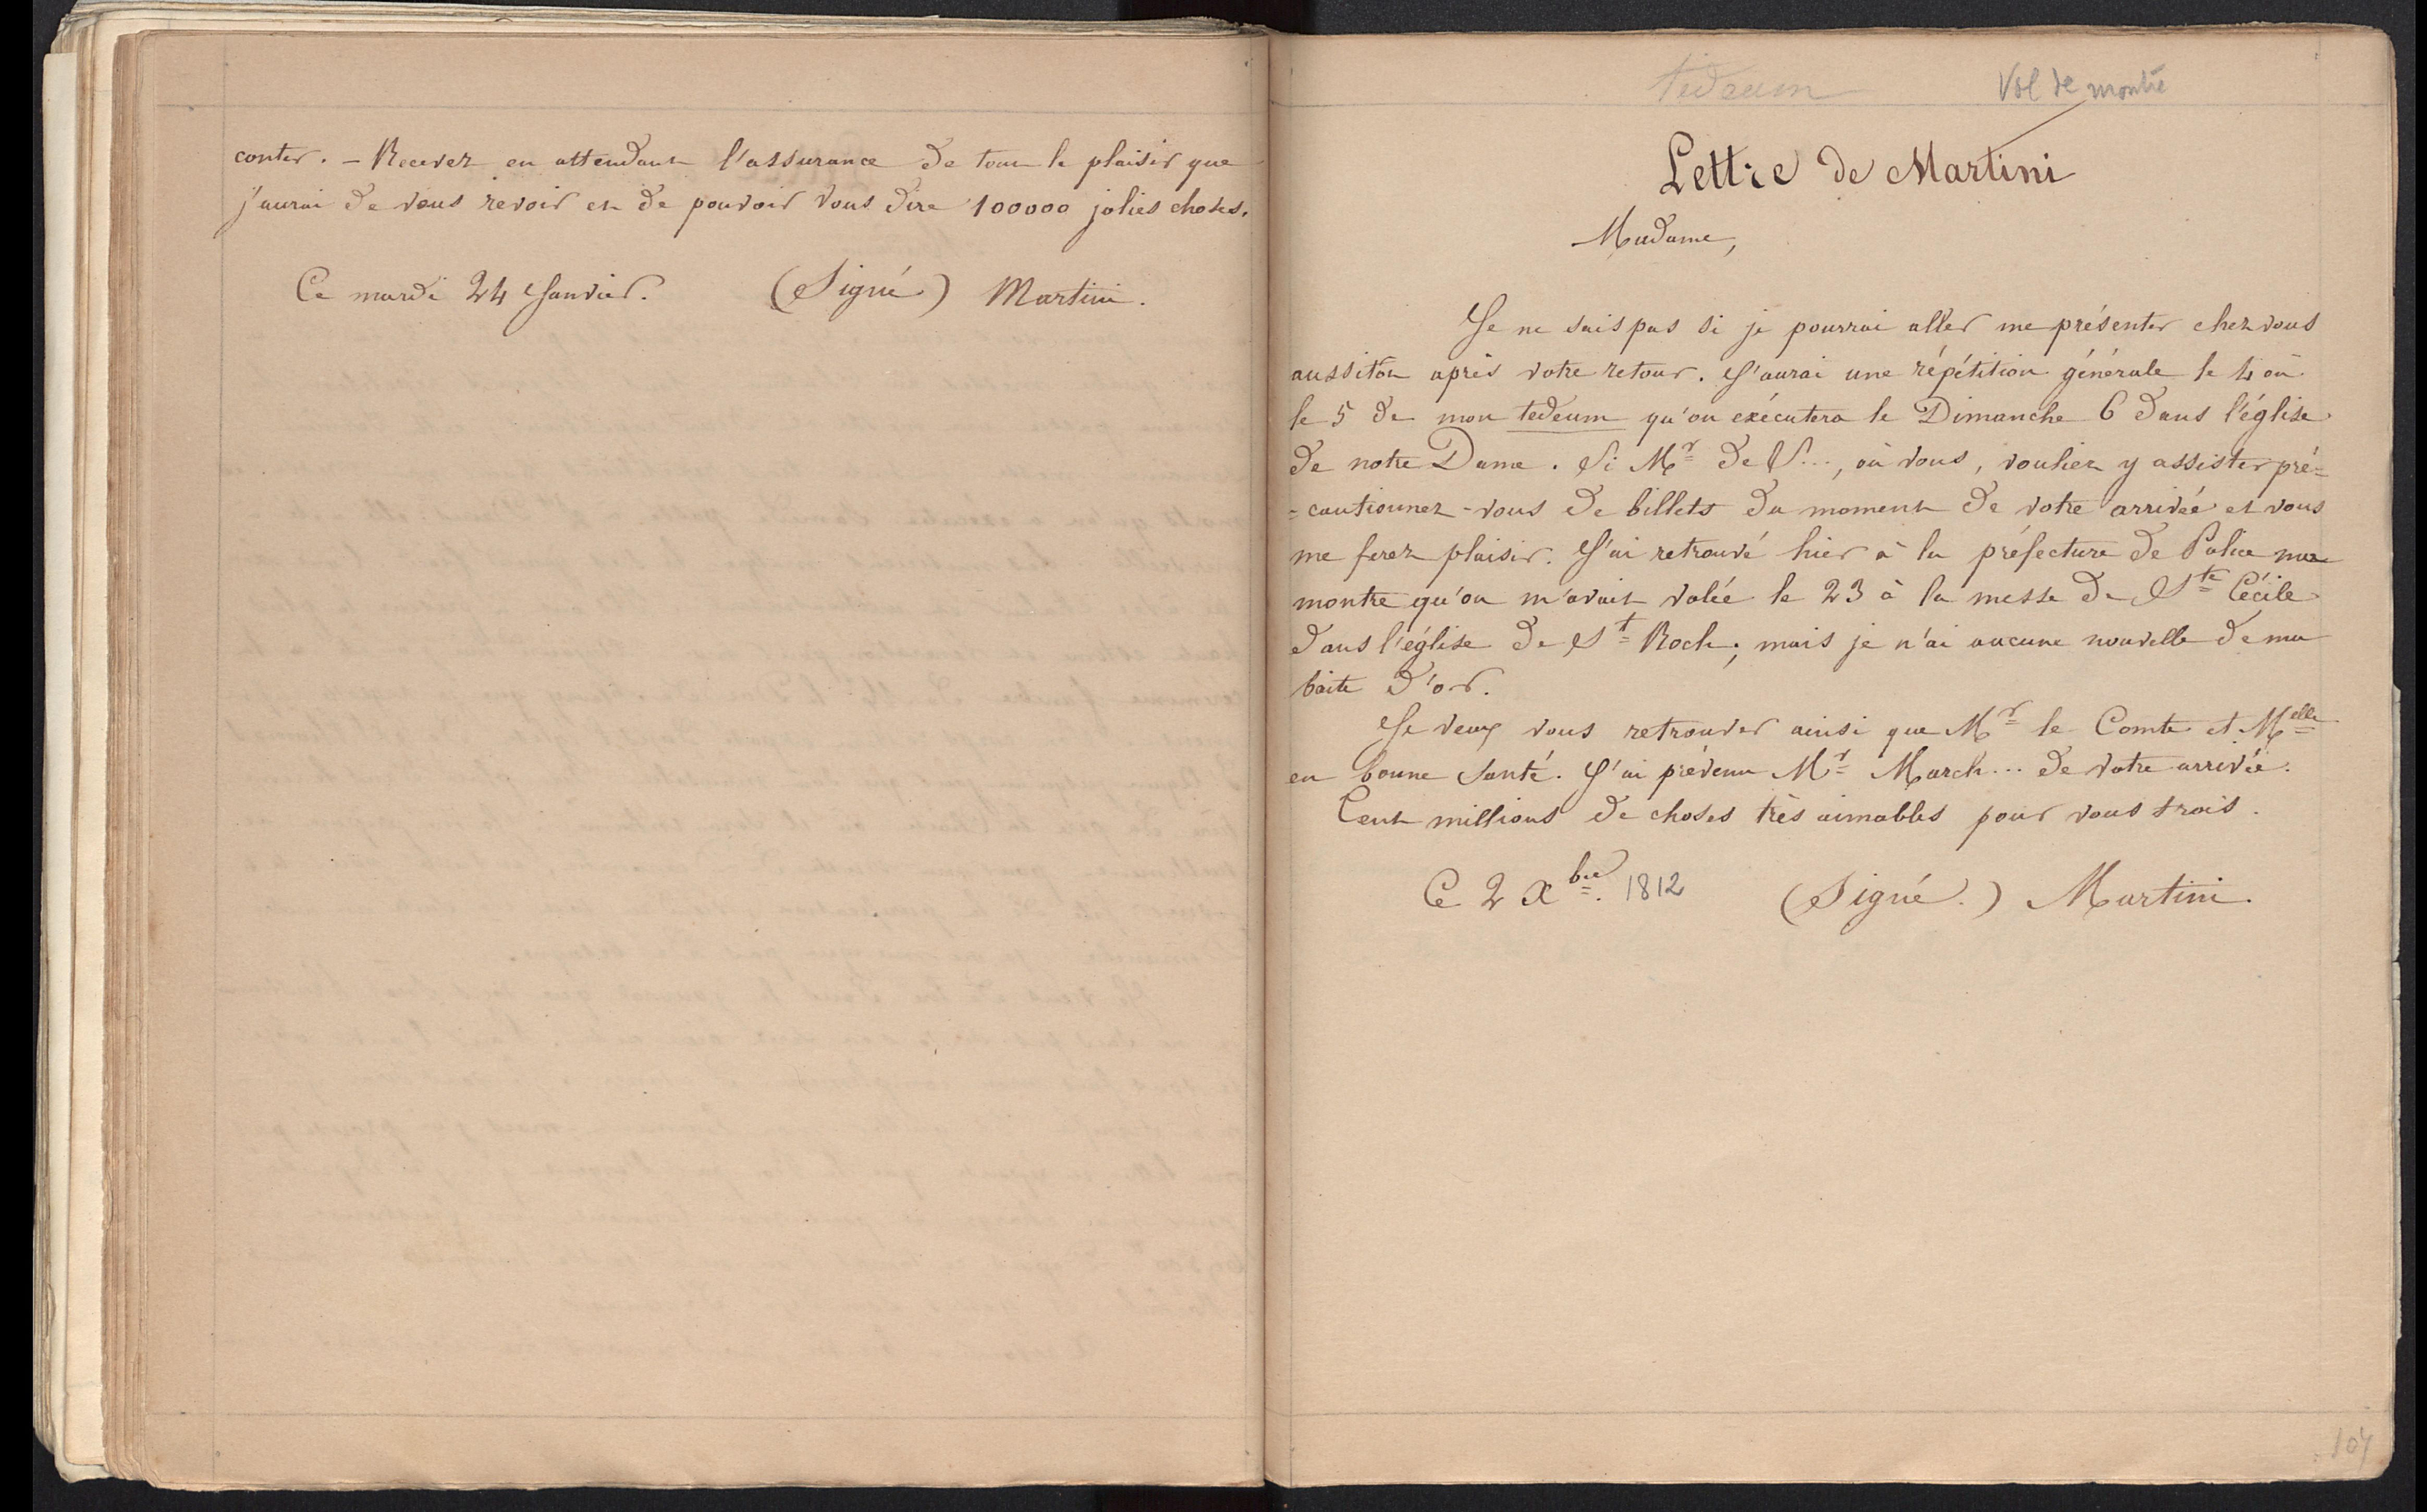 conter. – Recevez en attendant l'assurance de tout le plaisir que
j'aurai de vous revoir et de pouvoir vous dire 100000 jolies choses.
Ce mardi 24 Janvier. (Signé) Martini.
tedeum Vol de montre
Lettre de Martini
Madame,
Je ne sais pas si je pourrai aller me présenter chez vous
aussitôt après votre retour. J'aurai une répétition générale le 4 où
le 5 de mon tedeum qu'on exécutera le Dimanche 6 dans l'église
de notre Dame. Si Mr de S..., où vous, vouliez y assister pré=
=cautionnez-vous de billets du moment de votre arrivée et vous
me ferez plaisir. J'ai retrouvé hier à la préfecture de Police ma
montre qu'on m'avait volée le 23 à la messe de Ste Cécile
dans l'église de St Roch; mais je n'ai aucune nouvelle de ma
boite d'or.
Je veux vous retrouver ainsi que Mr le Comte et Melle
en bonne santé. J'ai prévenu Mr March... de votre arrivée.
Cent millions de choses très aimables pour vous trois.
Ce 2 Xbre. 1812 (Signé.) Martini.